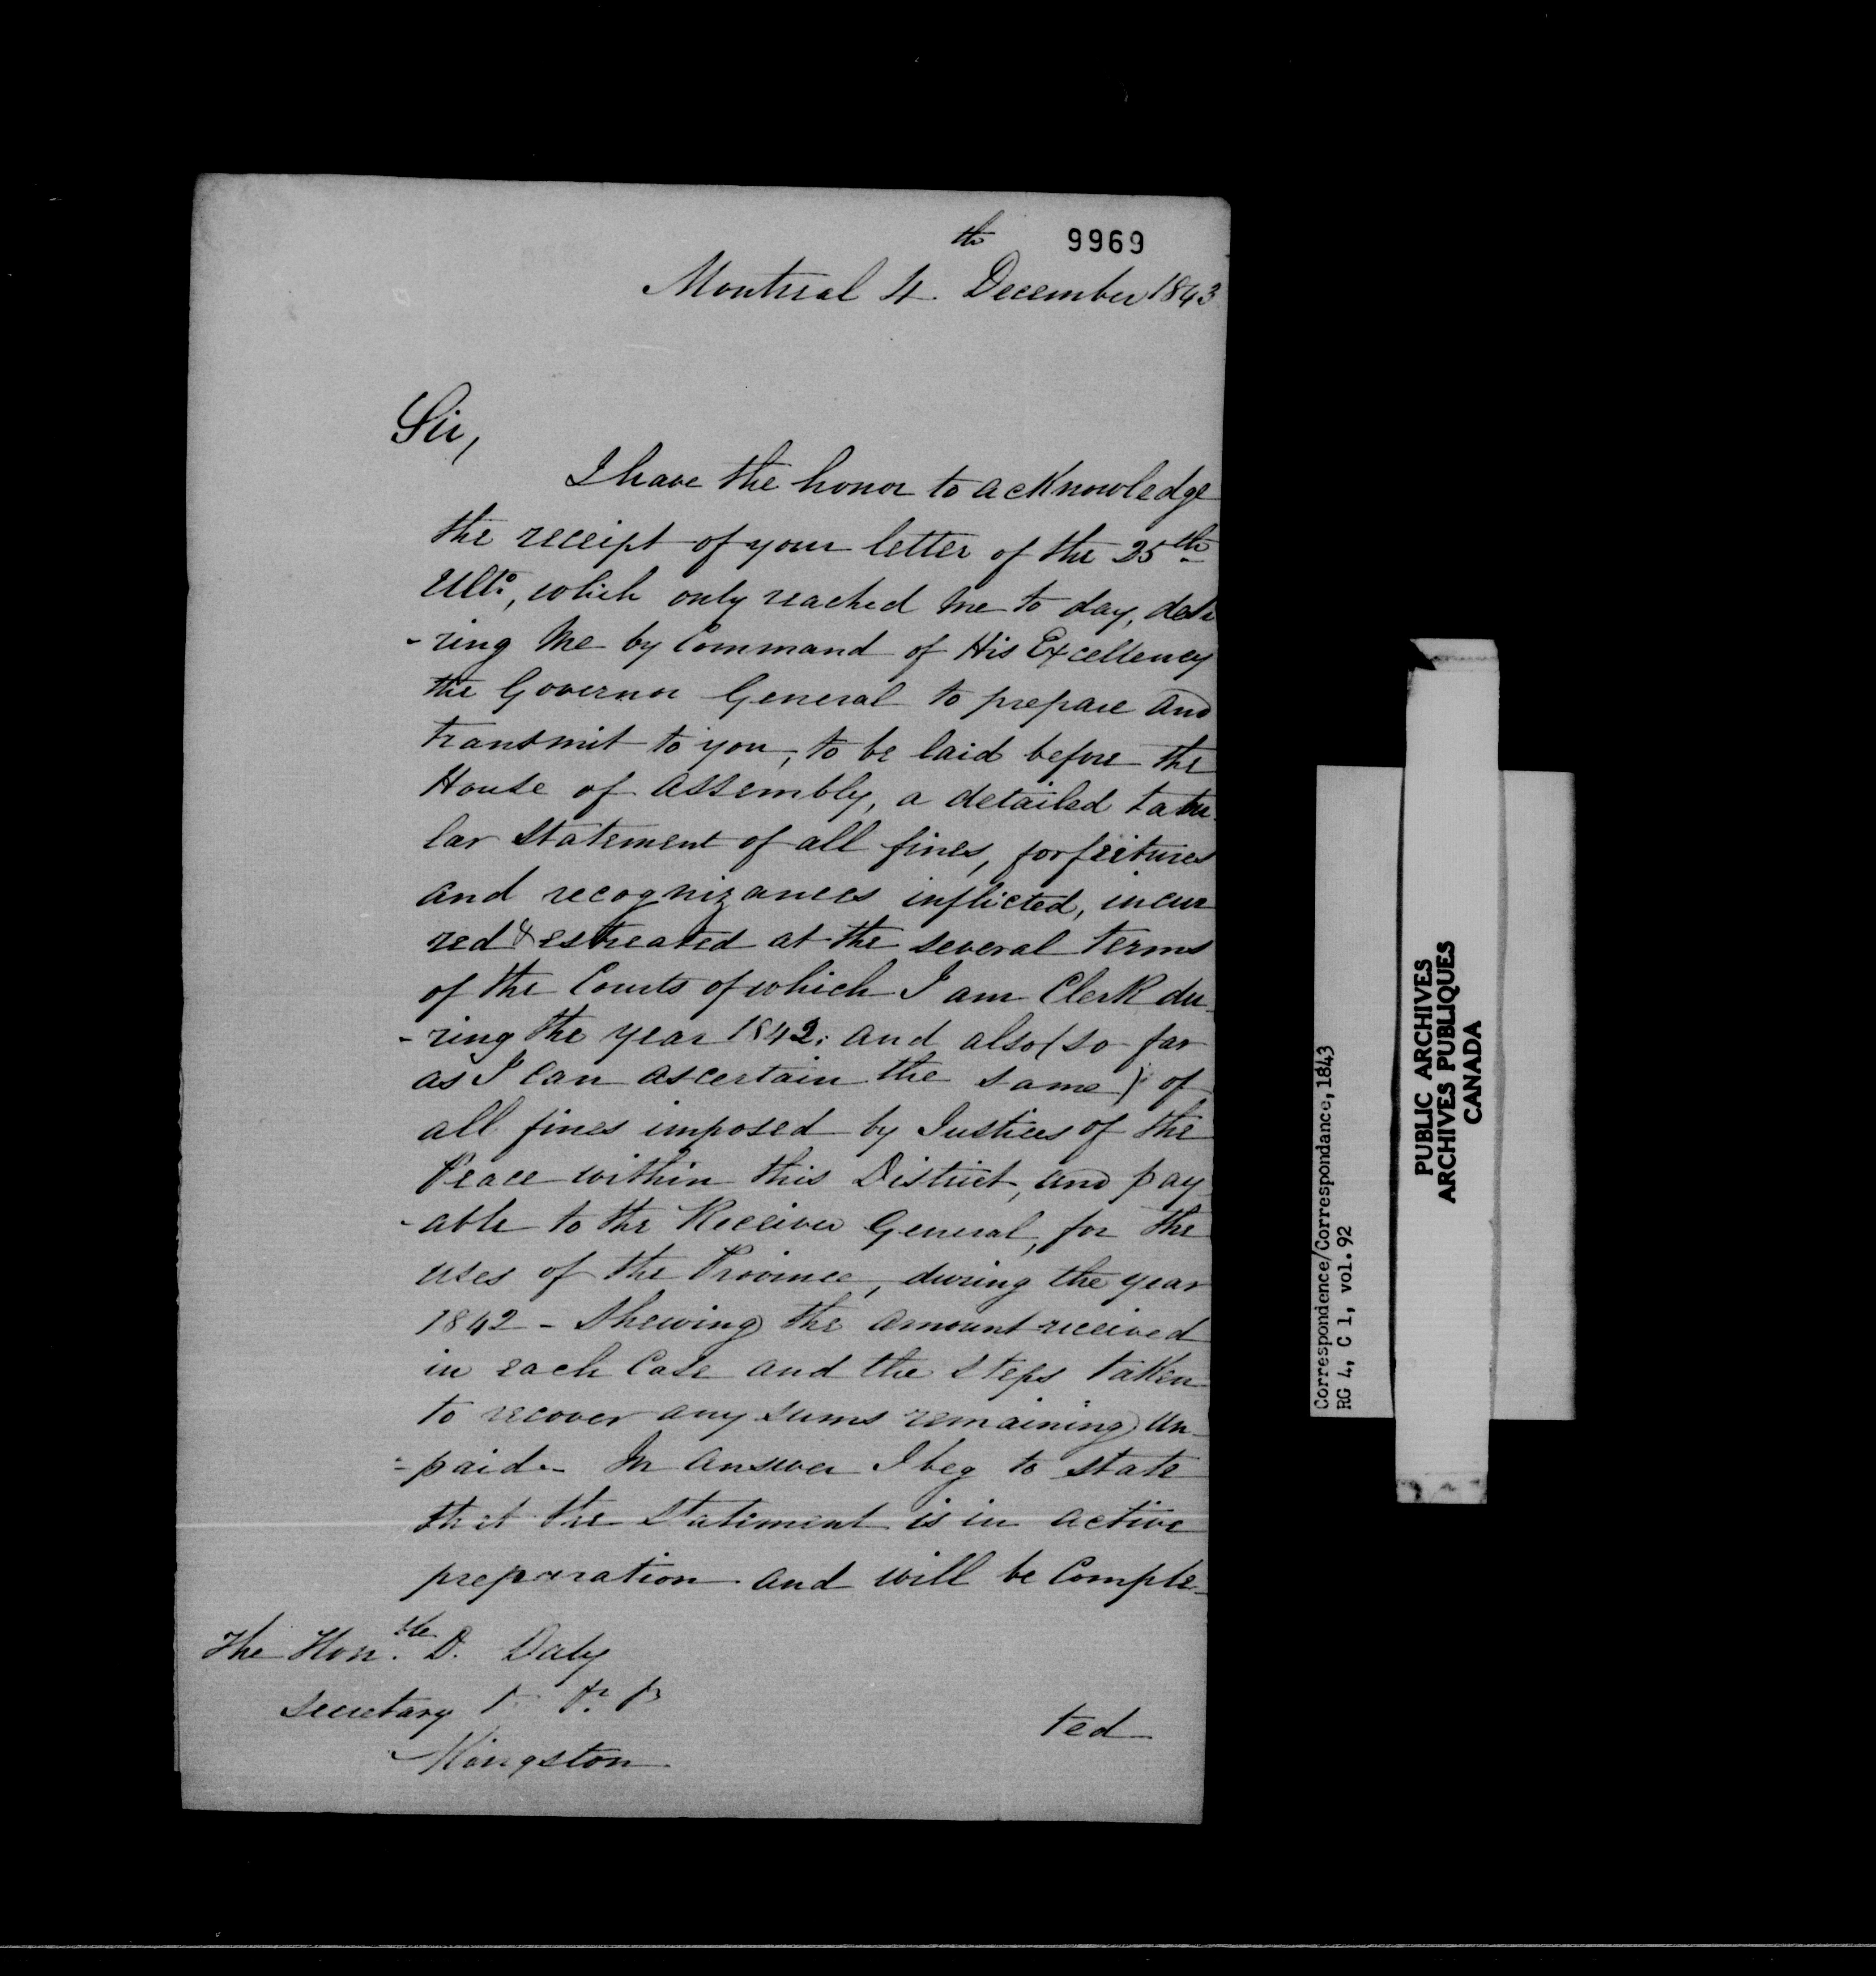 9969
Montreal 4th December 1843
Sir,
I have the honor to acknowledge
the receipt of your letter of the 25th
Ulto, which only reached me to day, desi
-ring me by Command of His Excellency
the Governor General to prepare and
transmit to you, to be laid before the
House of Assembly, a detailed tabu
lar statement of all fines, forfeitures
and recognizances inflicted, incur
red & estreated at the several terms
of the Courts of which I am Clerk du
-ring the year 1842: and also (so far
as I can ascertain the same) of
all fines imposed by Justices of the
Peace within this District, and pay
-able to the Receiver General, for the
uses of the Province, during the year
1842 - Shewing the amount received
in each Case and the steps taken
to recover any sums remaining un
=paid - In answer I beg to state
that the statement is in active
preparation and will be Comple-
ted
The Honble D. Daly
Secretary
Kingston
Correspondence/Correspondance,1843
RG 4, C 1, vol.92
PUBLIC ARCHIVES
ARCHIVES PUBLIQUES
CANADA